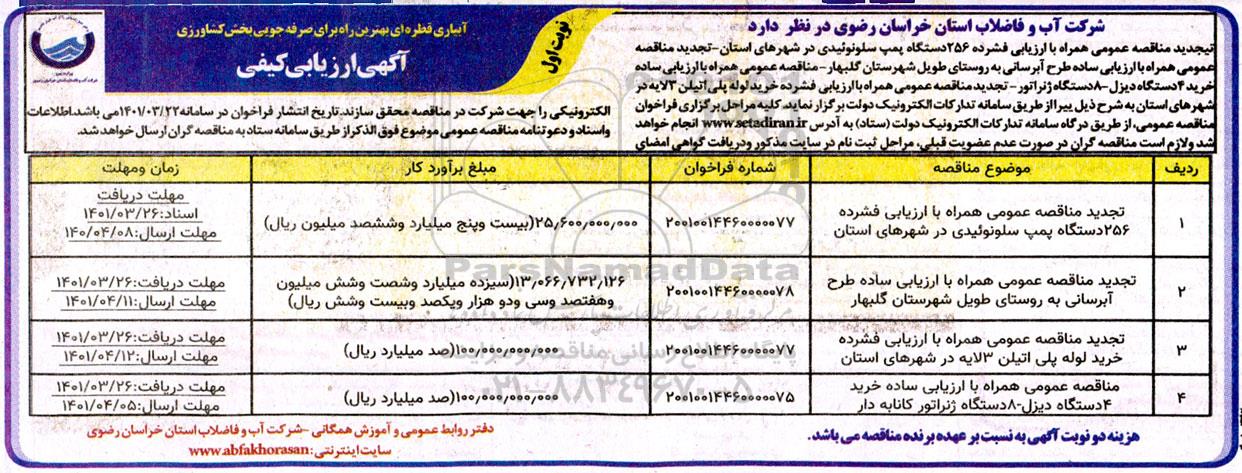 شرکت آب و فاضلاب استان خراسان رضوی در نظر دارد
تیجدید مناقصه عمومی همراه با ارزیابی فشرده ۲۵۶دستگاه پمپ سلونوئیدی در شهرهای استان-تجدید مناقصه
عمومی همراه با ارزیابی ساده طرح آبرسانی به روستای طویل شهرستان گلبهار-مناقصه عمومی همراه با ارزیابی ساده
خرید ۴دستگاه دیزل-۸دستگاه ژنراتور - تجدید مناقصه عمومی همراه با ارزیابی فشرده خرید لوله پلی اتیلن ۳لایه در
شهرهای استان به شرح ذیل پیرا از طریق سامانه تدارکات الکترونیک دولت برگزار نماید. کلیه مراحل برگزاری فراخوان
مناقصه عمومی، از طریق درگاه سامانه تدارکات الکترونیک دولت (ستاد) به آدرس www.setadiran.ir انجام خواهد
شد ولازم است مناقصه گران در صورت عدم عضویت قبلی، مراحل ثبت نام در سایت مذکور ودریافت گواهی امضای
نوبت اول
آبیاری قطره ای بهترین راه برای صرفه جویی بخش کشاورزی
آگهی ارزیابی کیفی
الکترونیکی را جهت شرکت در مناقصه محقق سازند. تاریخ انتشار فراخوان در سامانه ۱۴۰۱/۰۳/۲۲می باشد. اطلاعات
واسناد و دعوتنامه مناقصه عمومی موضوع فوق الذکر از طریق سامانه ستاد به مناقصه گران ارسال خواهد شد.
ردیف موضوع مناقصه شماره فراخوان مبلغ برآورد کار زمان ومهلت
۱ تجدید مناقصه عمومی همراه با ارزیابی فشرده ۲۵۶دستگاه پمپ سلونوئیدی در شهرهای استان ۲۰۰۱۰۰۱۴۴۶۰۰۰۰۰۷۷ ۲۵٫۶۰۰٫۰۰۰٫۰۰۰(بیست وپنج میلیارد وششصد میلیون ریال) مهلت دریافت اسناد:۱۴۰۱/۰۳/۲۶ مهلت ارسال:۱۴۰/۰۴/۰۸
۲ تجدید مناقصه عمومی همراه با ارزیابی ساده طرح آبرسانی به روستای طویل شهرستان گلبهار ۲۰۰۱۰۰۱۴۴۶۰۰۰۰۰۷۸ ۱۳٫۰۶۶٫۷۳۲٫۱۲۶(سیزده میلیارد وشصت وشش میلیون وهفتصد وسی ودو هزار ویکصد وبیست وشش ریال) مهلت دریافت:۱۴۰۱/۰۳/۲۶ مهلت ارسال:۱۴۰۱/۰۴/۱۱
۳ تجدید مناقصه عمومی همراه با ارزیابی فشرده خرید لوله پلی اتیلن ۳لایه در شهرهای استان ۲۰۰۱۰۰۱۴۴۶۰۰۰۰۰۷۷ ۱۰۰٫۰۰۰٫۰۰۰٫۰۰۰(صد میلیارد ریال) مهلت دریافت:۱۴۰۱/۰۳/۲۶ مهلت ارسال:۱۴۰۱/۰۴/۱۲
۴ مناقصه عمومی همراه با ارزیابی ساده خرید ۴دستگاه دیزل-۸دستگاه ژنراتور کانابه دار ۲۰۰۱۰۰۱۴۴۶۰۰۰۰۰۷۵ ۱۰۰٫۰۰۰٫۰۰۰٫۰۰۰(صد میلیارد ریال) مهلت دریافت:۱۴۰۱/۰۳/۲۶ مهلت ارسال:۱۴۰۱/۰۴/۰۵
هزینه دو نوبت آگهی به نسبت بر عهده برنده مناقصه می باشد.
دفتر روابط عمومی و آموزش همگانی -شرکت آب و فاضلاب استان خراسان رضوی
سایت اینترنتی: www.abfakhorasan
ParsNamadData
پایگاه اطلاع رسانی مناقصه و مزایده
۰۲۱-۸۸۳۴۹۶۷۰-۵